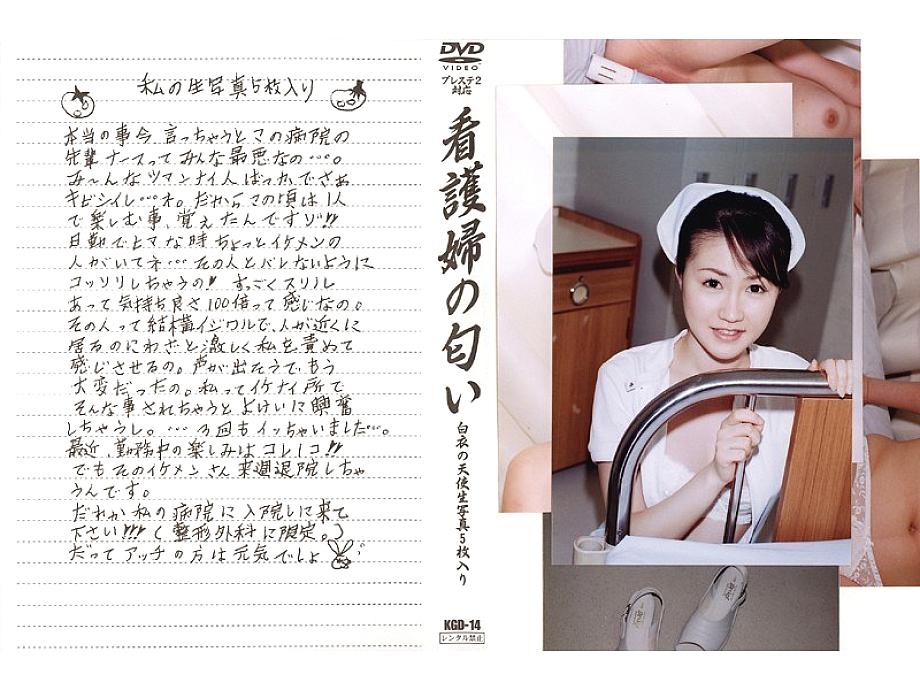 私の生写真5枚入り
本当の事今言っちゃうとこの病院の
先輩ナースってみんな最悪なの…。
み〜んなツマンナイ人ばっかでさぁ
キビシイし…オ。だからこの頃は1人
で楽しむ事、覚えたんですゾ!!
日勤でヒマな時ちょっとイケメンの
人がいてネ…その人とバレないように
コッソリしちゃうの!!すっごくスリル
あって気持ち良さ100倍って感じなの。
その人って結構イジワルで、人が近くに
居るのにわざと激しく私を責めて
感じさせるの。声が出そうでもう
大変だったの。私ってイケナイ所で
そんな事されちゃうとよけいに興奮
しちゃうし。…3回もイッちゃいました…。
最近、勤務中の楽しみはコレ1コ!!
でもそのイケメンさん来週退院しちゃ
うんです。
だれか私の病院に入院しに来て
下さい!!!(整形外科に限定。)
だってアッチの方は元気でしょ
DVD
VIDEO
プレステ2
対応
看護婦の匂い
白衣の天使生写真5枚入り
KGD-14
レンタル禁止